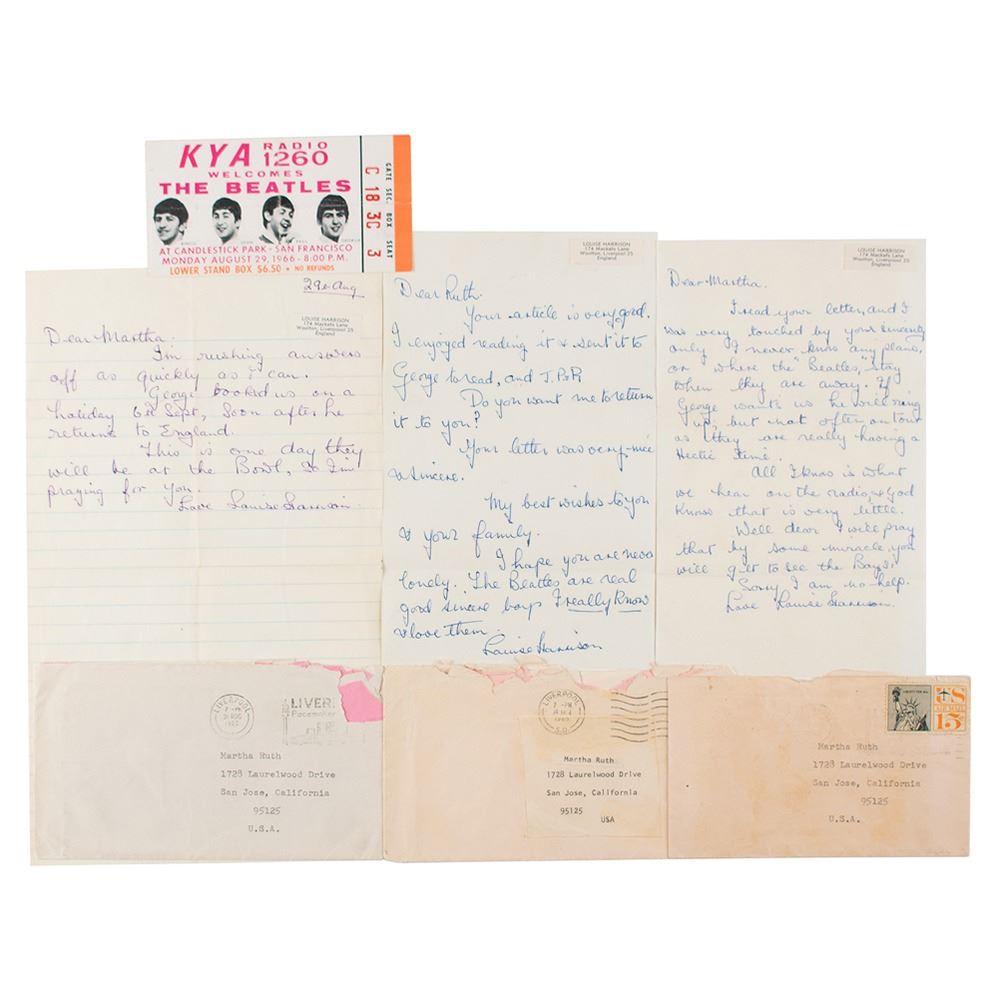 KYA RADIO 1260
WELCOMES
THE BEATLES
RINGO JOHN PAUL GEORGE
AT CANDLESTICK PARK - SAN FRANCISCO
MONDAY AUGUST 29, 1966 - 8:00 P.M.
LOWER STAND BOX $6.50 • NO REFUNDS
GATE SEC. BOX SEAT
C 18 3C 3
29th Aug
LOUISE HARRISON
174 Mackets Lane
Woolton, Liverpool 25
England
Dear Martha.
I'm rushing answers
off as quickly as I can.
George booked us on a
holiday 6th Sept, Soon after he
returns to England.
This is one day they
will be at the Bowl, so I'm
praying for you.
Love Louise Harrison.
LOUISE HARRISON
174 Mackets Lane
Woolton, Liverpool 25
England
Dear Ruth.
Your article is very good.
I enjoyed reading it & sent it to
George to read, and J. P & R.
Do you want me to return
it to you?
Your letter was very nice
& sincere.
My best wishes to you
& your family.
I hope you are never
lonely. The Beatles are real
good sincere boys I really know
& love them.
Louise Harrison
LOUISE HARRISON
174 Mackets Lane
Woolton, Liverpool 25
England
Dear Martha.
I read your letter, and I
was very touched by your sincerity
only I never know any plans,
or where the "Beatles" stay
when they are away. If
George wants us he will ring
up, but not often on tour
as they are really having a
Hectic time.
All I know is what
we hear on the radio, & God
knows that is very little.
Well dear I will pray
that by some miracle, you
will get to see the Boys.
Sorry I am no help.
Love Louise Harrison.
LIVERPOOL
7 - PM
AUG
LIVER
Pacemaker
Martha Ruth
1728 Laurelwood Drive
San Jose, California
95125
U.S.A.
LIVERPOOL
7 - PM
Martha Ruth
1728 Laurelwood Drive
San Jose, California
95125
USA
LIBERTY FOR ALL
US
AIR MAIL
15¢
Martha Ruth
1728 Laurelwood Drive
San Jose, California
95125
U.S.A.